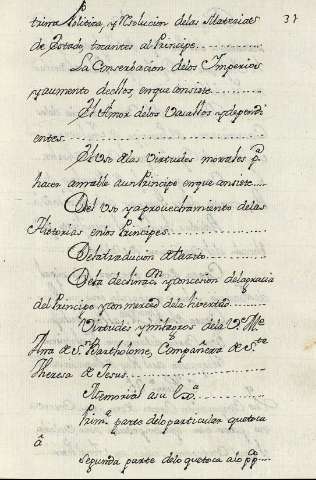 37
trina Politica, y Resolucion de las Materias
de Estado, tocantes al Principe
La Conserbacion de los Imperios
y aumento de ellos, en que consiste
El Amor de los Vasallos y dependi
entes
El Uso de las Virtudes morales pª
hacer amable a un Principe en que consiste
Del Uso y aprovechamiento de las
Historias en los Principes
De la traducion de Tacito
De la declinacᵒⁿ y concesion de la gracia
del Principe y con merced de la
Virtudes y milagros de la V. Mᵉ
Ana de S. Bartholome, Compañera de Sᵗᵃ
Theresa de Jesus
Memorial a su
Primª parte de lo particular que toca
â
Segunda parte de lo que toca a lo